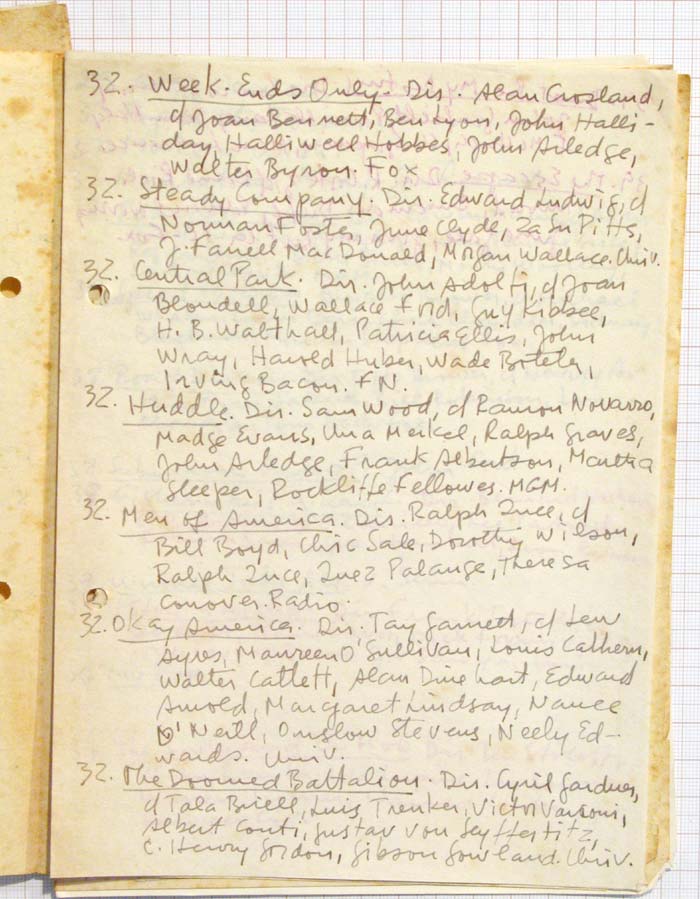 32. Week-Ends Only. Dir. Alan Crosland,
c/ Joan Bennett, Ben Lyon, John Halli-
day, Halliwell Hobbes, John Arledge,
Walter Byron. Fox
32. Steady Company. Dir. Edward Ludwig, c/
Norman Foster, June Clyde, Za Su Pitts,
J. Farrell MacDonald, Morgan Wallace. Univ.
32. Central Park. Dir. John Adolfi, c/ Joan
Blondell, Wallace Ford, Guy Kibbee,
H. B. Walthall, Patricia Ellis, John
Wray, Harold Huber, Wade Boteler,
Irving Bacon. FN.
32. Huddle. Dir. Sam Wood, c/ Ramon Novarro,
Madge Evans, Una Merkel, Ralph Graves,
John Arledge, Frank Albertson, Martha
Sleeper, Rockliffe Fellowes. MGM.
32. Men of America. Dir. Ralph Ince, c/
Bill Boyd, Chic Sale, Dorothy Wilson,
Ralph Ince, Inez Palange, Theresa
Conover. Radio.
32. Okay America. Dir. Tay Garnett, c/ Lew
Ayres, Maureen O'Sullivan, Louis Calhern,
Walter Catlett, Alan Dinehart, Edward
Arnold, Margaret Lindsay, Nance
O'Neill, Onslow Stevens, Neely Ed-
wards. Univ.
32. The Doomed Battalion. Dir. Cyril Gardner,
c/ Tala Birell, Luis Trenker, Victor Varconi,
Albert Conti, Gustav von Seyffertitz,
C. Henry Gordon, Gibson Gowland. Univ.